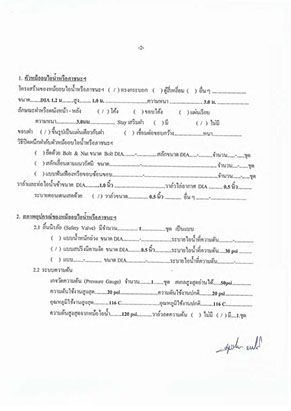 -2-
1. ตัวหม้อไอน้ำหรือภาชนะฯ
โครงสร้างของหม้อไอน้ำหรือภาชนะฯ ( / ) ทรงกระบอก ( ) ตู้สี่เหลี่ยม ( ) อื่น ๆ
ขนาด......DIA 1.2 ม......สูง........1.0 ม..............ความหนา...............3.0 ม.
ลักษณะฝาหรือผนังหน้า - หลัง ( / ) โค้ง ( ) ขอบโค้ง ( ) แผ่นเรียบ
ความหนา.......3.0มม......... Stay เสริมฝา ( ) มี ( / ) ไม่มี
ขอบฝา ( / ) ขึ้นรูปเป็นแผ่นเดียวกับฝา ( ) เชื่อมต่อขอบกว้าง.............หนา
วิธีปิดผนึกฝากับตัวหม้อไอน้ำหรือภาชนะฯ
( ) ยึดด้วย Bolt & Nut ขนาด Bolt DIA.............-.............สลักขนาด DIA..........-..........จำนวน.....-.....ชุด
( ) สลักเลื่อนตามแนวรัศมี ขนาด DIA..........-..........จำนวน.....-.....ชุด
( ) แบบฟันเฟืองหรือขอบซ้อนขอบ..........-..........จำนวน.....-.....ชุด
วาล์วและท่อไอน้ำเข้าขนาด DIA...........1.0 นิ้ว............ วาล์วไล่อากาศ DIA ........ 0.5 นิ้ว
ระบายคอนเดนเสทด้วย ( / ) วาล์วขนาด........0.5 นิ้ว........ อื่น ๆ
2. สภาพอุปกรณ์ของหม้อไอน้ำหรือภาชนะฯ
2.1 ลิ้นนิรภัย (Safety Valve) มีจำนวน..........1..........ชุด เป็นแบบ
( ) แบบน้ำหนักถ่วง ขนาด DIA..........-..........ระบายไอน้ำที่ความดัน..........-
( / ) แบบสปริงมีคานงัด ขนาด DIA.....0.5 นิ้ว.....ระบายไอน้ำที่ความดัน.......30 psi
( ) แบบ...........ขนาด DIA..........-..........ระบายไอน้ำที่ความดัน..........-
2.2 ระบบความดัน
เกจวัดความดัน (Pressure Gauge) จำนวน.......1.......ชุด สเกลสูงสุดอ่านได้.....50psi
ความดันใช้งานสูงสุด..........20 psi..........ความดันใช้งานปกติ..........20 psi
อุณหภูมิใช้งานสูงสุด..........116 C..........อุณหภูมิใช้งานปกติ..........116 C
ความดันสูงสุดจากหม้อไอน้ำ.......120 psi.......วาล์วลดความดัน ( ) ไม่มี ( / ) มี....1.ชุด